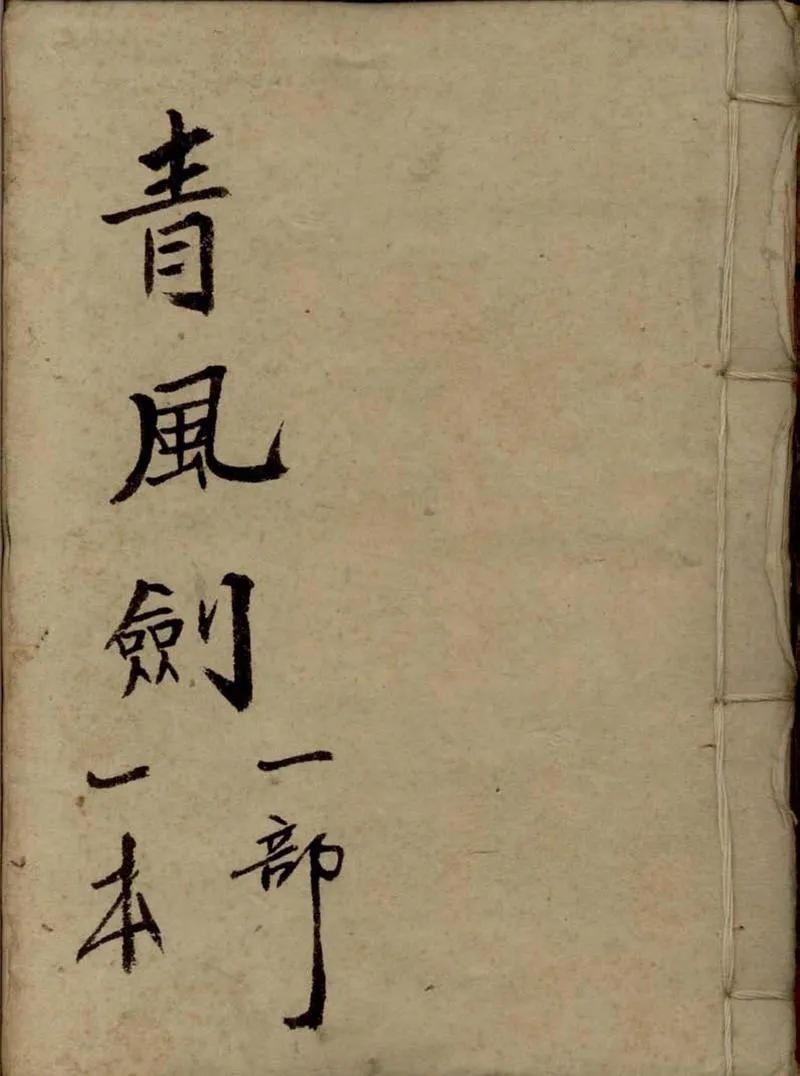 青風劍
一部
一本